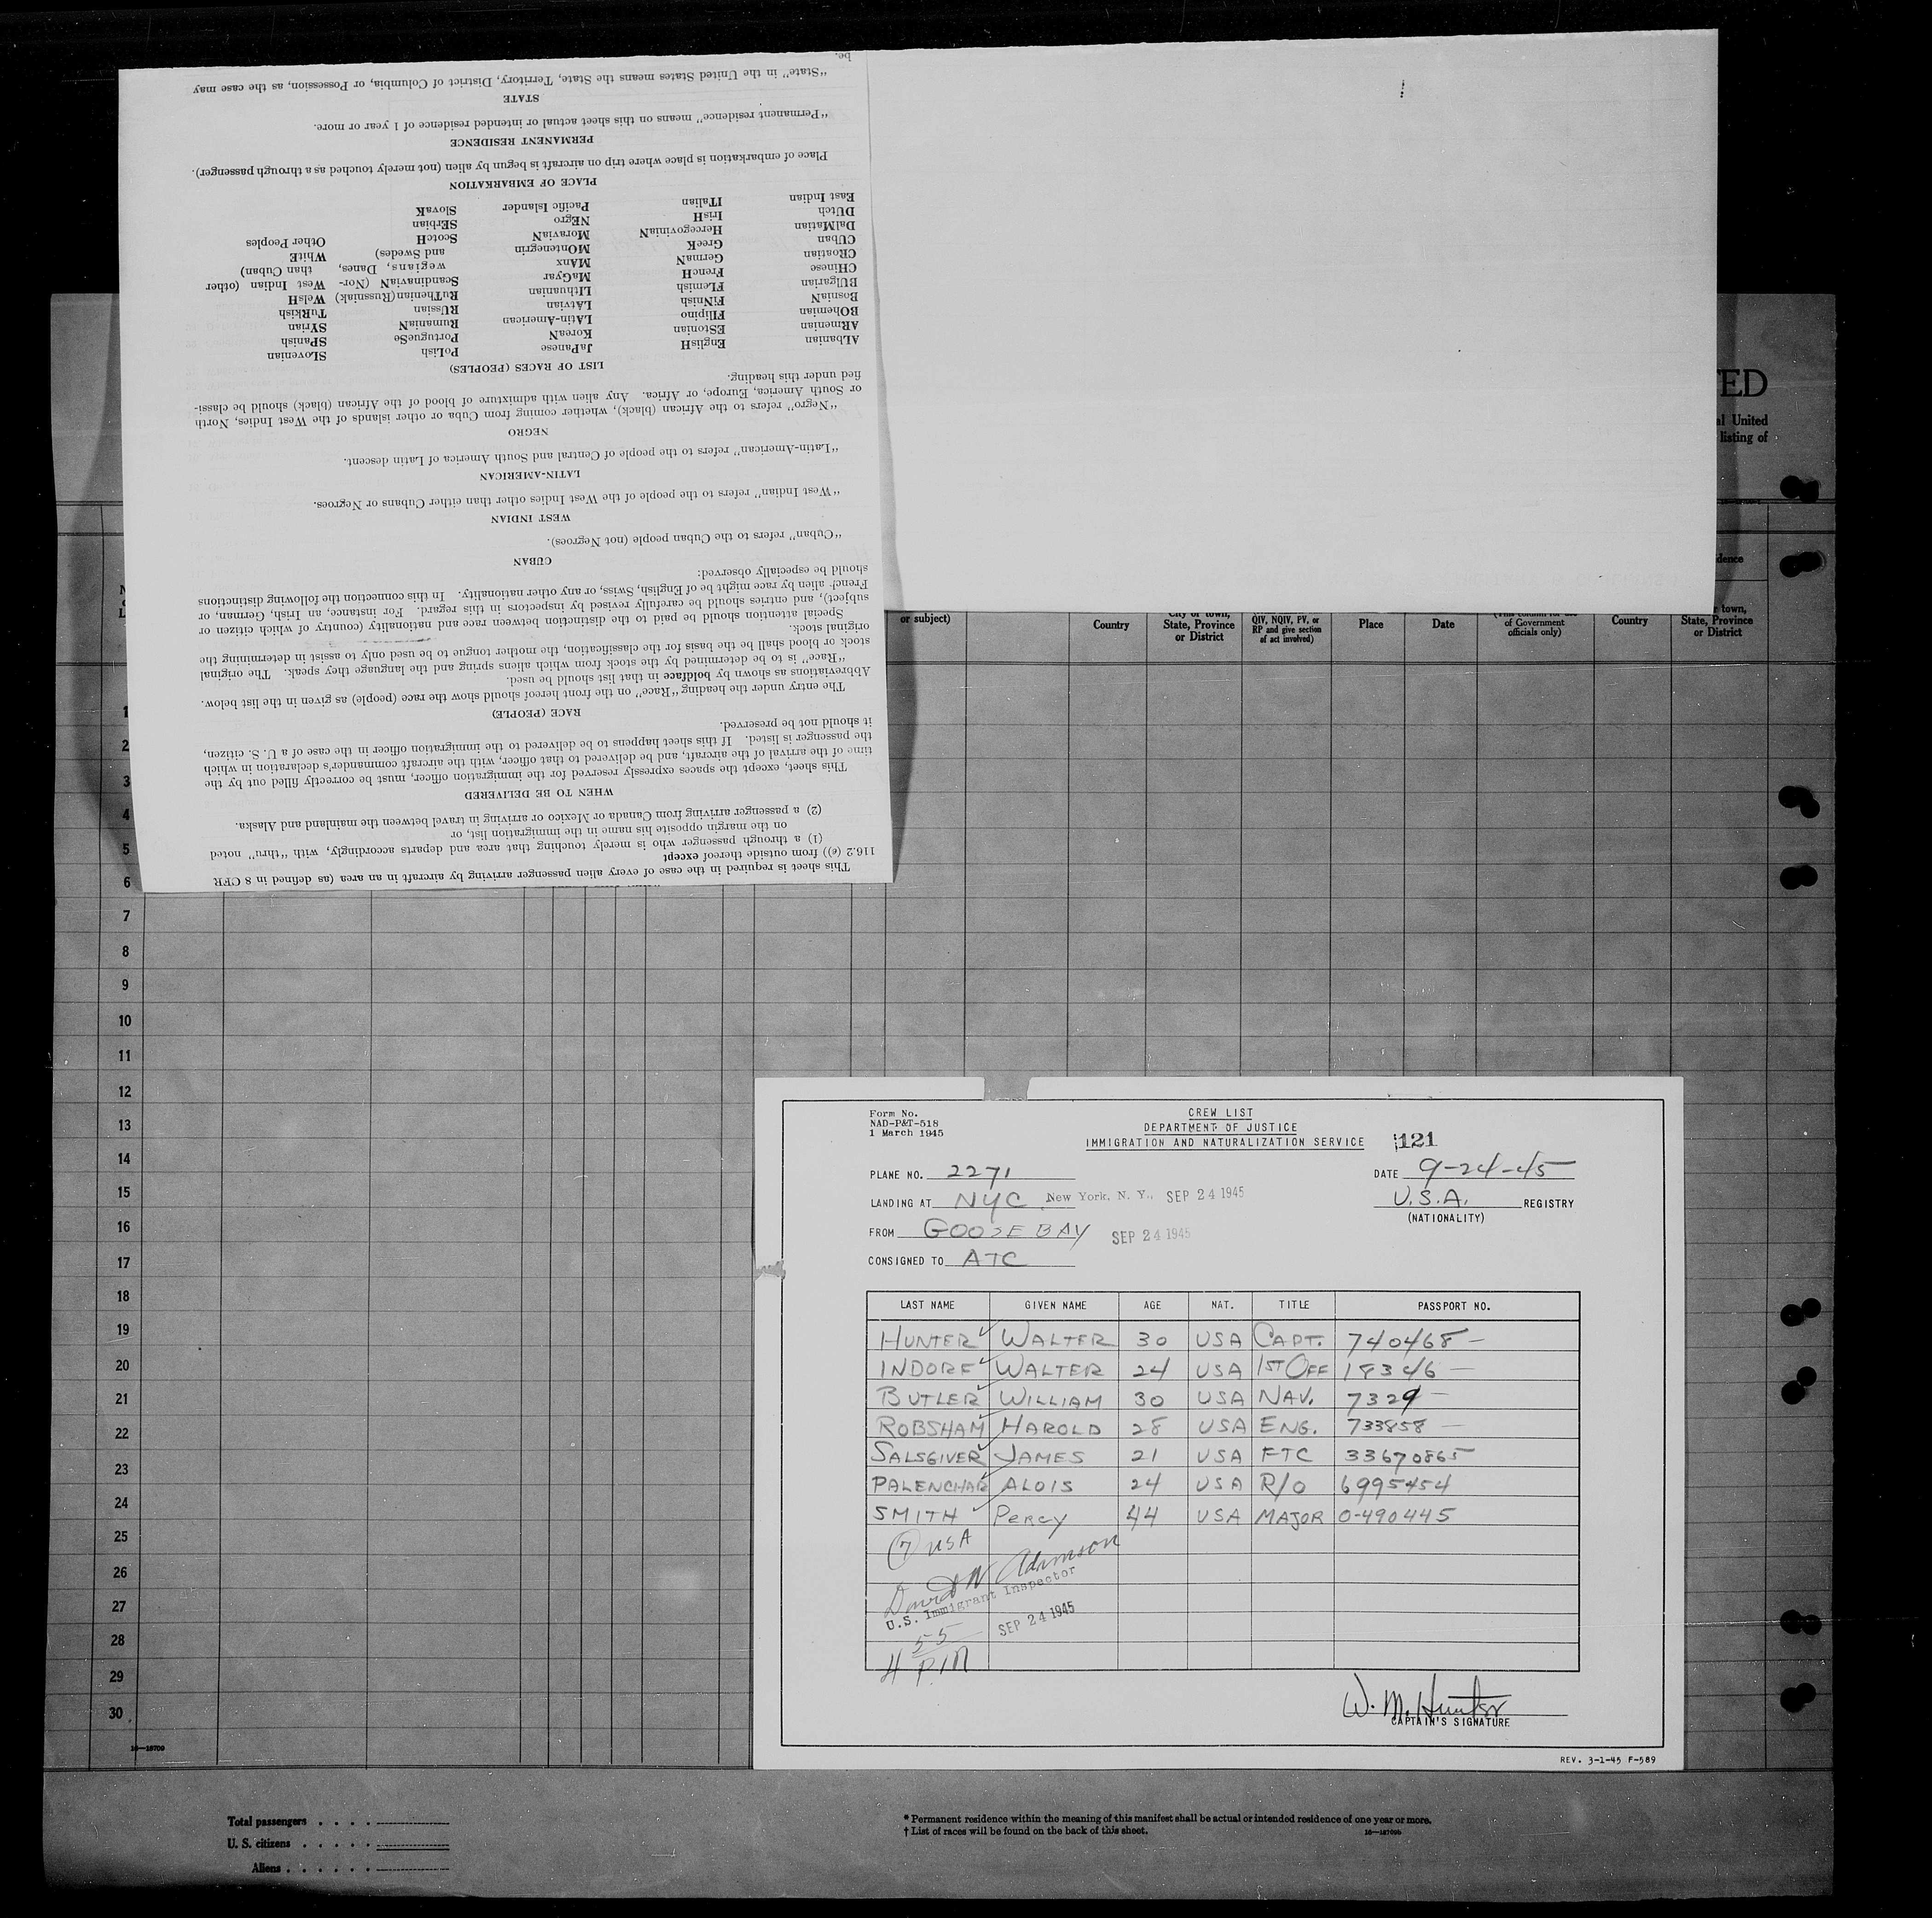 This sheet is required in the case of every alien passenger arriving by aircraft in an area (as defined in 8 CFR
116.2 (e)) from outside thereof except
(1) a through passenger who is merely touching that area and departs accordingly, with "thru" noted
on the margin opposite his name in the immigration list, or
(2) a passenger arriving from Canada or Mexico or arriving in travel between the mainland and Alaska.
WHEN TO BE DELIVERED
This sheet, except the spaces expressly reserved for the immigration officer, must be correctly filled out by the
time of the arrival of the aircraft, and be delivered to that officer, with the aircraft commander's declaration in which
the passenger is listed. If this sheet happens to be delivered to the immigration officer in the case of a U. S. citizen,
it should not be preserved.
RACE (PEOPLE)
The entry under the heading "Race" on the front hereof should show the race (people) as given in the list below.
Abbreviations as shown by boldface in that list should be used.
"Race" is to be determined by the stock from which aliens spring and the language they speak. The original
stock or blood shall be the basis for the classification, the mother tongue to be used only to assist in determining the
original stock.
Special attention should be paid to the distinction between race and nationality (country of which citizen or
subject), and entries should be carefully revised by inspectors in this regard. For instance, an Irish, German, or
French alien by race might be of English, Swiss, or any other nationality. In this connection the following distinctions
should be especially observed:
CUBAN
"Cuban" refers to the Cuban people (not Negroes).
WEST INDIAN
"West Indian" refers to the people of the West Indies other than either Cubans or Negroes.
LATIN-AMERICAN
"Latin-American" refers to the people of Central and South America of Latin descent.
NEGRO
"Negro" refers to the African (black), whether coming from Cuba or other islands of the West Indies, North
or South America, Europe, or Africa. Any alien with admixture of blood of the African (black) should be classi-
fied under this heading.
LIST OF RACES (PEOPLES)
ALbanian EnglisH JaPanese PoLish SLovenian
ARmenian EStonian KoreaN PortugueSe SPanish
BOhemian FIlipino LAtin-American RumaniaN SYrian
BosniaN FiNnish LAtvian RUssian TuRkish
BUlgarian FLemish LIthuanian RuThenian (Russniak) WelsH
CHinese FrencH MaGyar ScandinaviaN (Nor- West Indian (other
CRoatian GermaN MAnx wegians, Danes, than Cuban)
CUban GreeK MOntenegrin and Swedes) WhitE
DalMatian HercegoviniaN MoraviaN ScotcH Other Peoples
DUtch IrisH NEgro SErbian
East Indian ITalian Pacific Islander SlovaK
PLACE OF EMBARKATION
Place of embarkation is place where trip on aircraft is begun by alien (not merely touched as a through passenger).
PERMANENT RESIDENCE
"Permanent residence" means on this sheet actual or intended residence of 1 year or more.
STATE
"State" in the United States means the State, Territory, District of Columbia, or Possession, as the case may
be.
TED
al United
listing of
dence
or subject) Country City or town, State, Province or District QIV, NQIV, PV, or RP and give section of act involved) Place Date (This column for use of Government officials only) Country r town, State, Province or District
1
2
3
4
5
6
7
8
9
10
11
12
13
14
15
16
17
18
19
20
21
22
23
24
25
26
27
28
29
30
16—18700
Form No.
NAD-P&T-518
1 March 1945
CREW LIST
DEPARTMENT OF JUSTICE
IMMIGRATION AND NATURALIZATION SERVICE 121
PLANE NO. 2271 DATE 9-24-45
LANDING AT NYC New York, N. Y., SEP 24 1945 U.S.A. REGISTRY
(NATIONALITY)
FROM GOOSE BAY SEP 24 1945
CONSIGNED TO ATC
LAST NAME GIVEN NAME AGE NAT. TITLE PASSPORT NO.
HUNTER WALTER 30 USA CAPT. 740468 —
INDORF WALTER 24 USA 1ST OFF 18346 —
BUTLER WILLIAM 30 USA NAV. 7329 —
ROBSHAM HAROLD 28 USA ENG. 733858 —
SALSGIVER JAMES 21 USA FTC 33670865
PALENCHAR ALOIS 24 USA R/O 6995454
SMITH PERCY 44 USA MAJOR 0-490445
(7) USA
David W Adamson
U.S. Immigrant Inspector
SEP 24 1945
4 55 P.M
W. M. Hunter
CAPTAIN'S SIGNATURE
REV. 3-1-45 F-589
Total passengers . . . .
U. S. citizens . . . . .
Aliens . . . . . .
* Permanent residence within the meaning of this manifest shall be actual or intended residence of one year or more.
† List of races will be found on the back of this sheet.